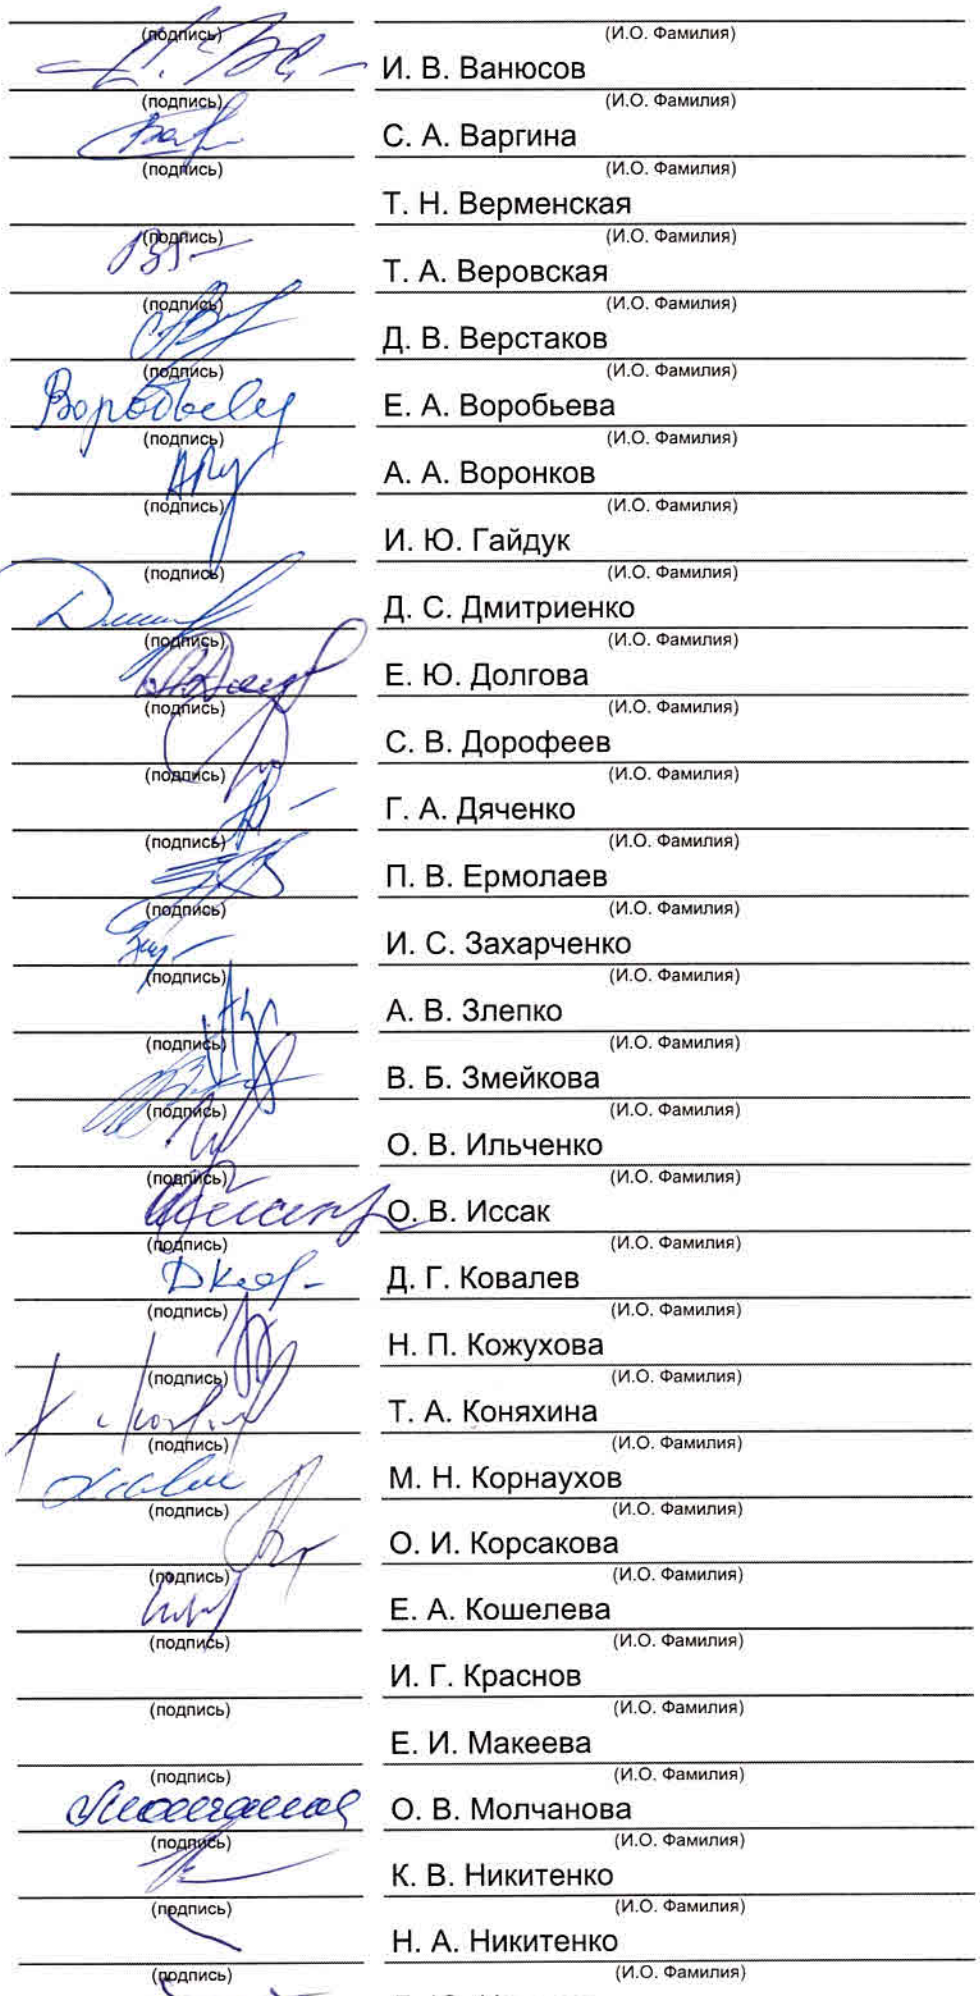 (подпись) (И.О. Фамилия)
И. В. Ванюсов
(подпись) (И.О. Фамилия)
С. А. Варгина
(подпись) (И.О. Фамилия)
Т. Н. Верменская
(подпись) (И.О. Фамилия)
Т. А. Веровская
(подпись) (И.О. Фамилия)
Д. В. Верстаков
(подпись) (И.О. Фамилия)
Воробьева Е. А. Воробьева
(подпись) (И.О. Фамилия)
А. А. Воронков
(подпись) (И.О. Фамилия)
И. Ю. Гайдук
(подпись) (И.О. Фамилия)
Д. С. Дмитриенко
(подпись) (И.О. Фамилия)
Е. Ю. Долгова
(подпись) (И.О. Фамилия)
С. В. Дорофеев
(подпись) (И.О. Фамилия)
Г. А. Дяченко
(подпись) (И.О. Фамилия)
П. В. Ермолаев
(подпись) (И.О. Фамилия)
И. С. Захарченко
(подпись) (И.О. Фамилия)
А. В. Злепко
(подпись) (И.О. Фамилия)
В. Б. Змейкова
(подпись) (И.О. Фамилия)
О. В. Ильченко
(подпись) (И.О. Фамилия)
О. В. Иссак
(подпись) (И.О. Фамилия)
Д. Г. Ковалев
(подпись) (И.О. Фамилия)
Н. П. Кожухова
(подпись) (И.О. Фамилия)
Т. А. Коняхина
(подпись) (И.О. Фамилия)
М. Н. Корнаухов
(подпись) (И.О. Фамилия)
О. И. Корсакова
(подпись) (И.О. Фамилия)
Е. А. Кошелева
(подпись) (И.О. Фамилия)
И. Г. Краснов
(подпись) (И.О. Фамилия)
Е. И. Макеева
(подпись) (И.О. Фамилия)
О. В. Молчанова
(подпись) (И.О. Фамилия)
К. В. Никитенко
(подпись) (И.О. Фамилия)
Н. А. Никитенко
(подпись) (И.О. Фамилия)